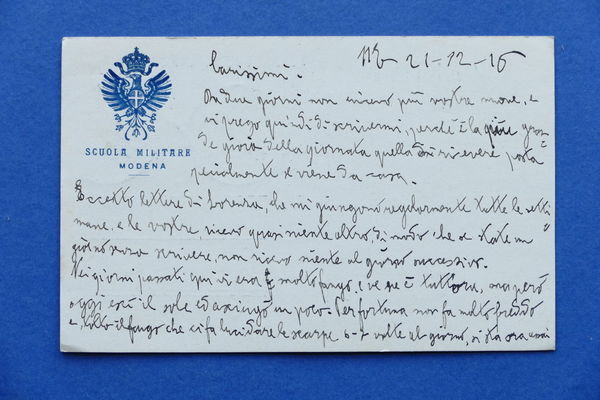 21-12-16
Carissimi.
SCUOLA MILITARE
MODENA
Da due giorni non ricevo più vostre nuove, e
vi prego quindi di scrivermi, perché è la più gran
de gioia della giornata quella di ricevere posta
specialmente se viene da casa.
Eccetto lettere di Lorenza, che mi giungono regolarmente tutte le setti
mane, e le vostre ricevo quasi niente altro, di modo che se state un
giorno senza scrivere, non ricevo niente al giorno successivo.
Nei giorni passati qui vi era molto fango, e ve ne è tuttora, ma però
oggi uscì il sole ed asciugò un poco. Per fortuna non fa molto freddo
e, tolto il fango che ci fa lucidare le scarpe 6-7 volte al giorno, si sta ora assai